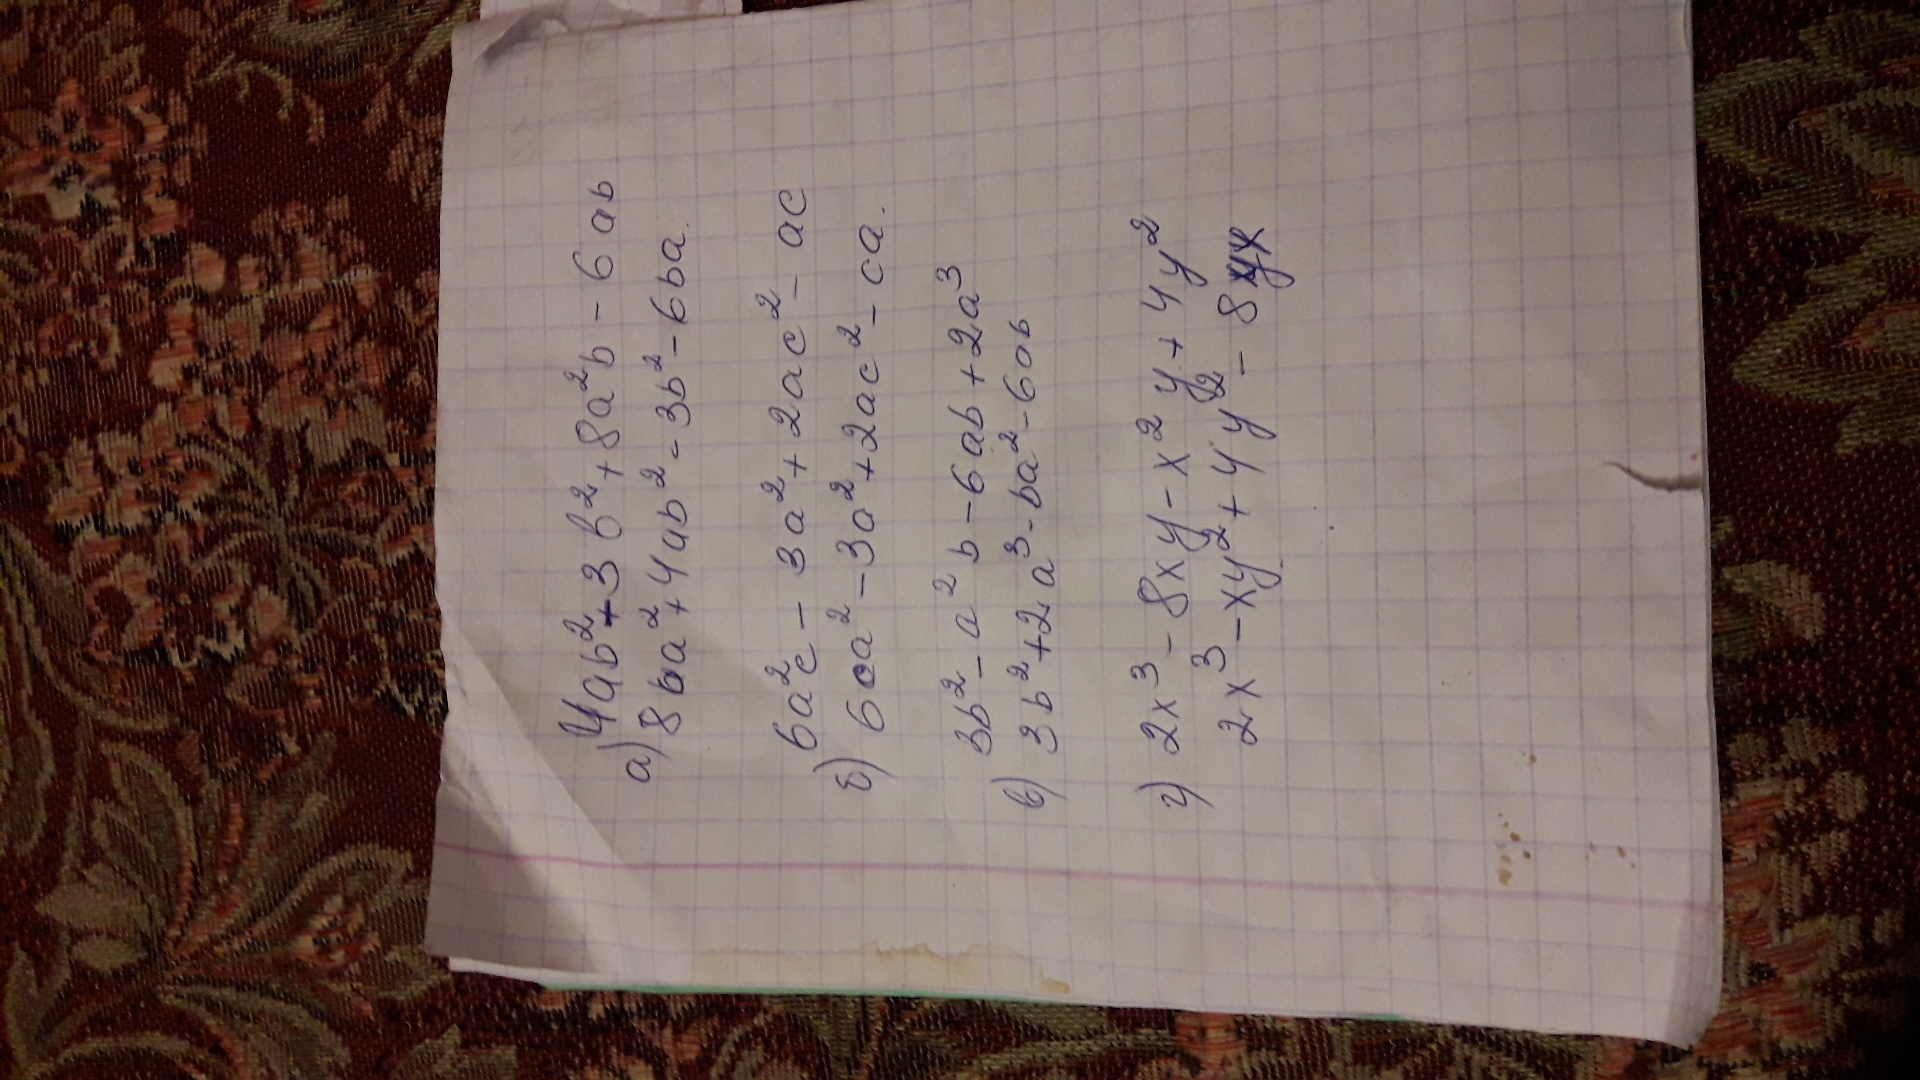 4ab²+3b²+8a²b-6ab
а) 8ba²+4ab²-3b²-6ba.
6a²c-3a²+2ac²-ac
б) 6ca²-3a²+2ac²-ca.
3b²-a²b-6ab+2a³
в) 3b²+2a³-ba²-6ab
г) 2x³-8xy-x²y+4y²
2x³-xy²+4y²-8yx